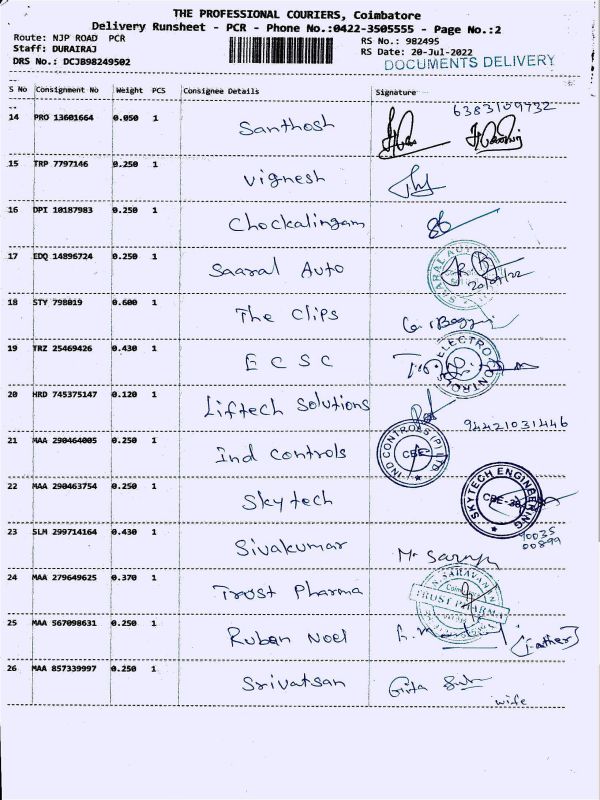 THE PROFESSIONAL COURIERS, Coimbatore
Delivery Runsheet - PCR - Phone No.:0422-3505555 - Page No.:2
Route: NJP ROAD PCR RS No.: 982495
Staff: DURAIRAJ RS Date: 20-Jul-2022
DRS No.: DCJB98249502 DOCUMENTS DELIVERY
S No Consignment No Weight PCS Consignee Details Signature
14 PRO 13601664 0.050 1 Santhosh 6383109732
15 TRP 7797146 0.250 1 Vignesh
16 DPI 10187983 0.250 1 Chockalingam
17 EDQ 14896724 0.250 1 Saaral Auto SAARAL AUTO 20/07/22
18 STY 798019 0.600 1 The Clips
19 TRZ 25469426 0.430 1 ECSC ELECTRO CONTROLS
20 HRD 745375147 0.120 1 Liftech Solutions
21 MAA 290464005 0.250 1 Ind Controls 94421031446 IND CONTROLS (P) LTD CBE
22 MAA 290463754 0.250 1 Skytech SKYTECH ENGINEERING CBE
23 SLM 299714164 0.430 1 Sivakumar 90035 00899
24 MAA 279649625 0.370 1 Trust Pharma S. SARAVAN TRUST PHARMA
25 MAA 567098631 0.250 1 Ruban Noel (Father)
26 MAA 857339997 0.250 1 Srivatsan Gita
wife